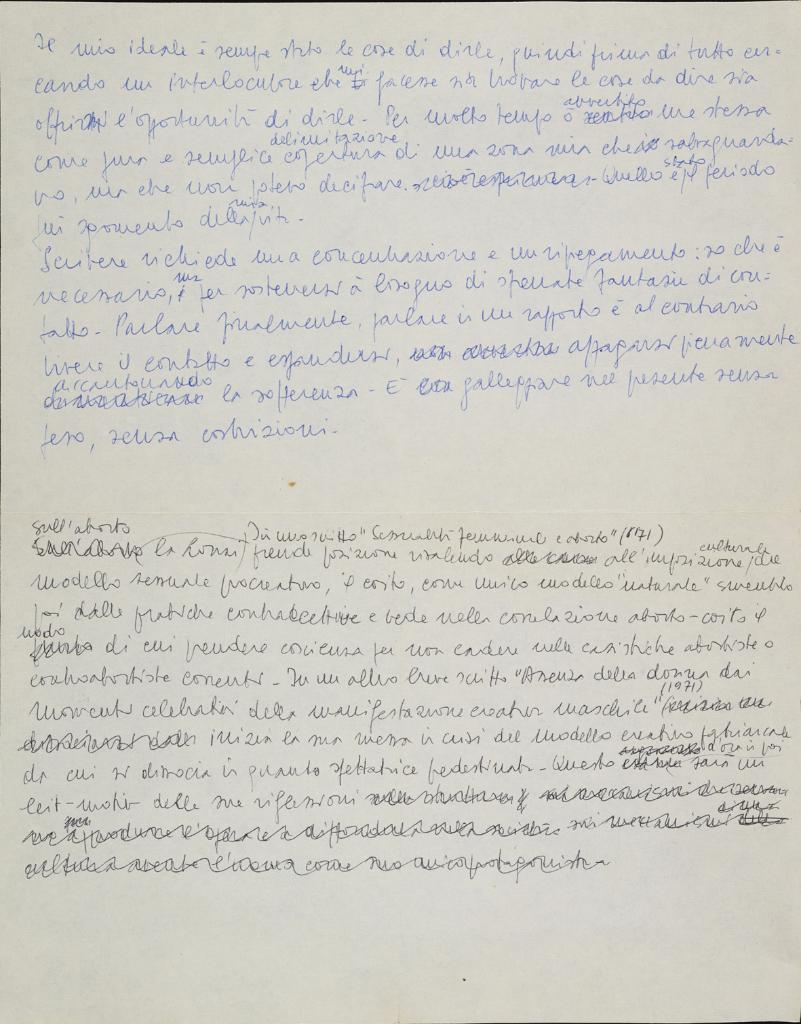 Il mio ideale è sempre stato le cose di dirle, quindi prima di tutto cer-
cando un interlocutore che mi facesse sia trovare le cose da dire sia
offrirmi l'opportunità di dirle. Per molto tempo ò avvertito me stessa
come pura e semplice delimitazione di una zona mia che salvaguarda-
vo, ma che non potevo decifrare. Quello è stato il periodo
più spomento della mia vita.
Scrivere richiede una concentrazione e un ripiegamento: so che è
necessario, ma per sostenersi à bisogno di sfrenate fantasie di con-
tatto. Parlare finalmente, parlare in un rapporto è al contrario
vivere il contatto e espandersi, appagarsi pienamente
accantonando la sofferenza. È galleggiare nel presente senza
peso, senza costrizioni.
sull'aborto
la Lonzi, In uno scritto "Sessualità femminile e aborto" (1971)
prende posizione risalendo all'imposizione culturale del
modello sessuale procreativo, il coito, come unico modello "naturale" smentito
poi dalle pratiche contraccettive e vede nella correlazione aborto-coito il
modo di cui prendere coscienza per non cadere nelle casistiche abortiste o
controabortiste correnti. In un altro breve scritto "Assenza della donna dai
momenti celebrativi della manifestazione creativa maschile" (1971)
inizia la sua messa in crisi del modello creativo patriarcale
da cui si dissocia in quanto spettatrice predestinata. Questo sarà poi un
leit-motiv delle sue riflessioni